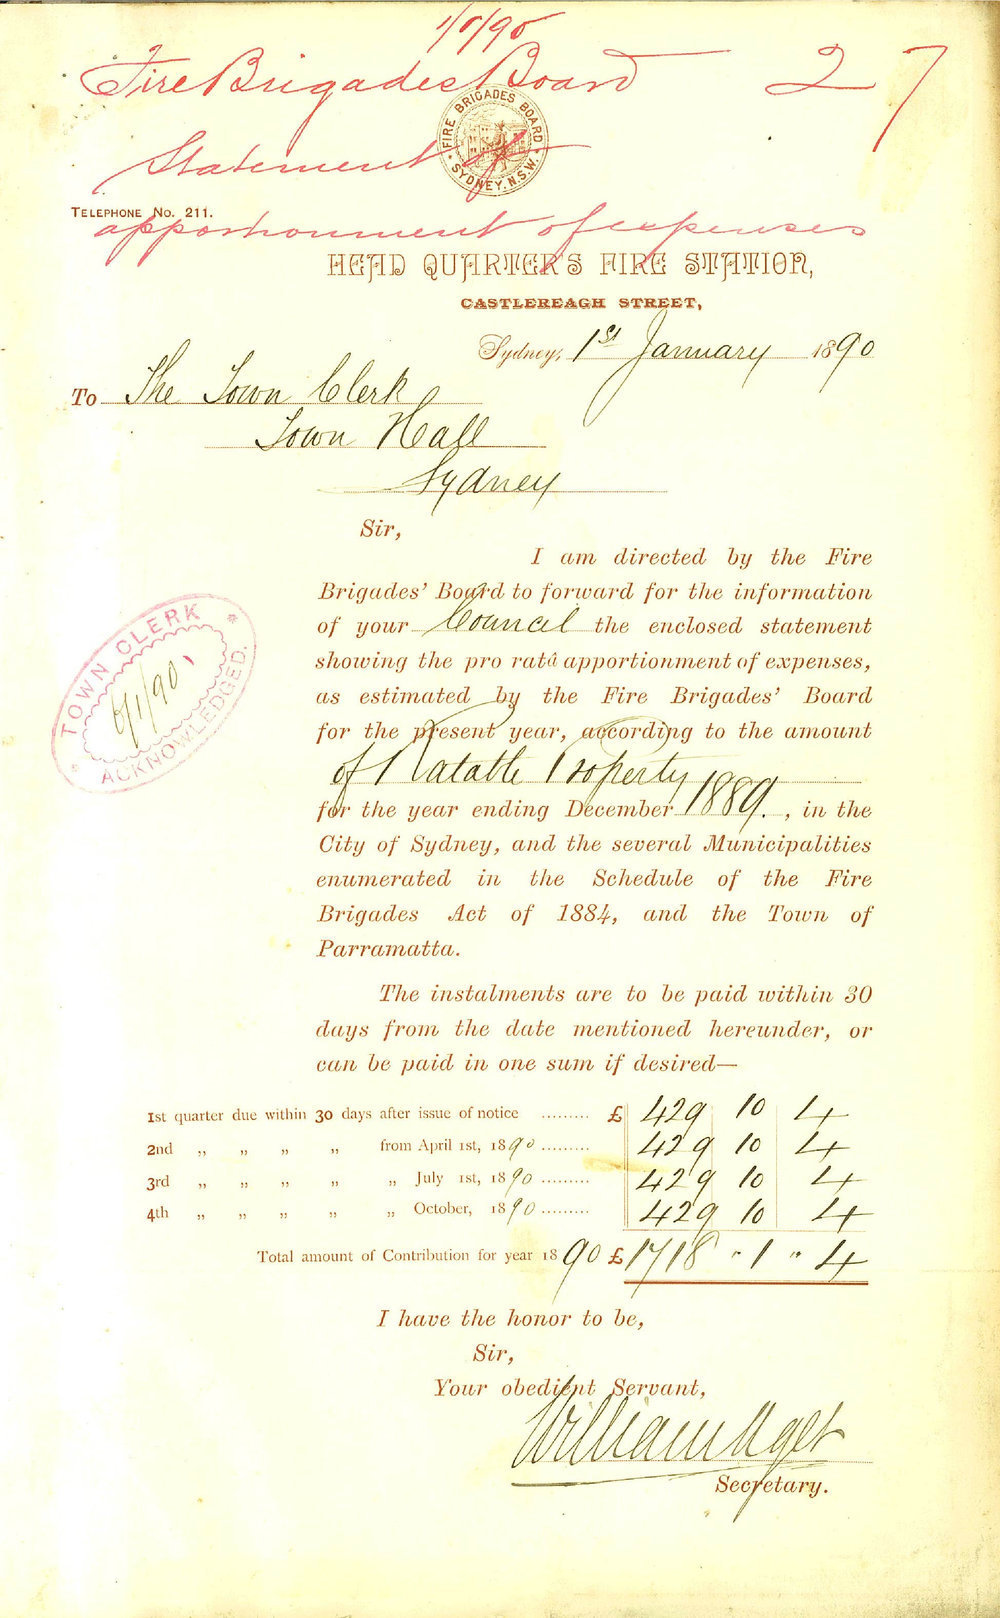 1/1/90
Fire Brigades Board 27
FIRE BRIGADES BOARD
SYDNEY. N.S.W.
Statement of
TELEPHONE No. 211.
apportionment of expenses
HEAD QUARTER'S FIRE STATION,
CASTLEREAGH STREET,
Sydney, 1st January 1890
To The Town Clerk
Town Hall
Sydney
Sir,
I am directed by the Fire
Brigades' Board to forward for the information
of your Council the enclosed statement
showing the pro ratâ apportionment of expenses,
as estimated by the Fire Brigades' Board
for the present year, according to the amount
of Ratable Property
for the year ending December 1889., in the
City of Sydney, and the several Municipalities
enumerated in the Schedule of the Fire
Brigades Act of 1884, and the Town of
Parramatta.
TOWN CLERK
6/1/90
ACKNOWLEDGED.
The instalments are to be paid within 30
days from the date mentioned hereunder, or
can be paid in one sum if desired—
1st quarter due within 30 days after issue of notice ......... £ 429 10 4
2nd " " " " from April 1st, 1890 ......... 429 10 4
3rd " " " " " July 1st, 1890 ......... 429 10 4
4th " " " " " October, 1890 ......... 429 10 4
Total amount of Contribution for year 1890 £ 1718 " 1 " 4
I have the honor to be,
Sir,
Your obedient Servant,
William
Secretary.